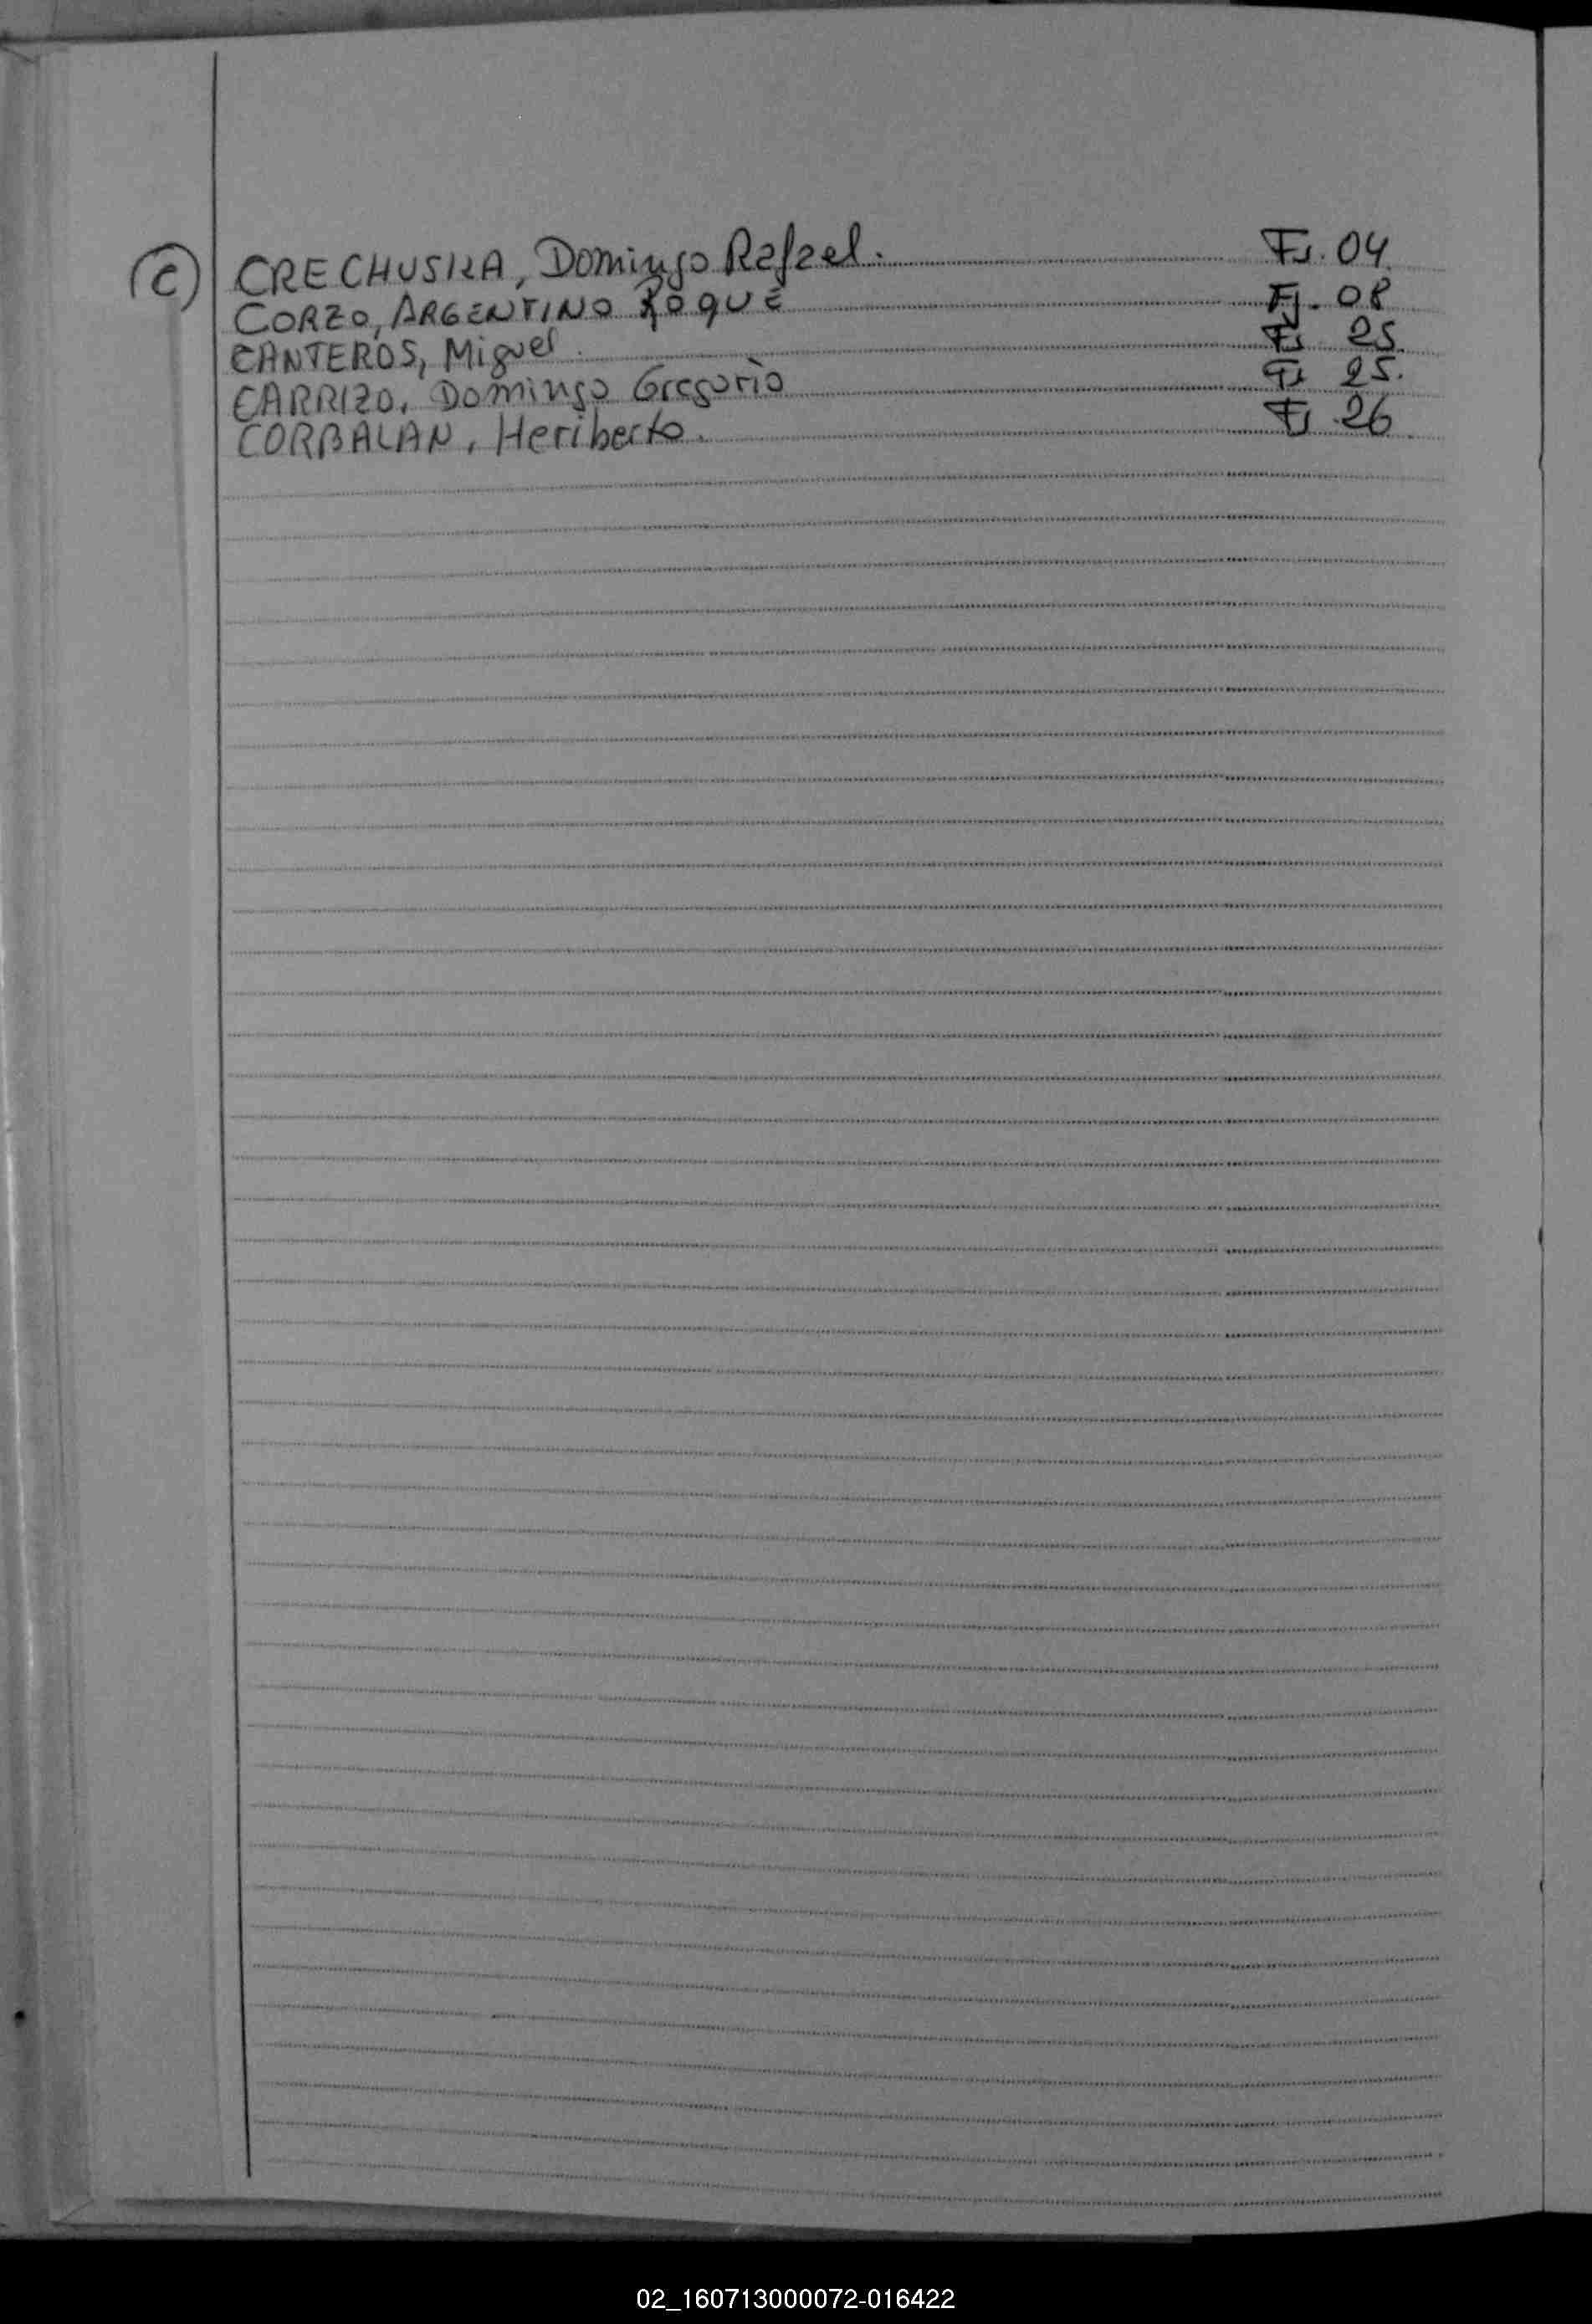 (C) CRECHUSKA, Domingo Rafael. Fs. 04.
CORZO, ARGENTINO ROQUE Fj. 08
CANTEROS, Miguel. Fs 25.
CARRIZO, Domingo Gregorio Fs 25.
CORBALAN, Heriberto. Fs 26.
02_160713000072-016422